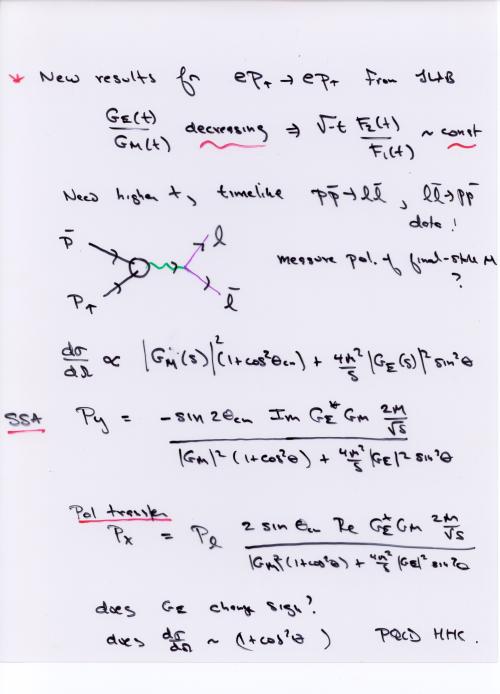 * New results for eP↑ → eP↑ From JLAB
G_E(t) / G_M(t) decreasing ⇒ √-t F₂(t) / F₁(t) ~ const
Need higher t, timelike pp̄ → ll̄, ll̄ → pp̄
data!
p̄ l
measure pol. of final-state M
?
P↑ l̄
dσ/dΩ ∝ |G_M(s)|² (1+cos²θcm) + 4M²/s |G_E(s)|² sin²θ
SSA Py = -sin 2θcm Im G_E* G_M 2M/√s
|G_M|² (1+cos²θ) + 4M²/s |G_E|² sin²θ
Pol transfer
Px = Pl 2 sin θcm Re G_E* G_M 2M/√s
|G_M|² (1+cos²θ) + 4M²/s |G_E|² sin²θ
does G_E change sign?
does dσ/dΩ ~ (1+cos²θ) PQCD HHC.